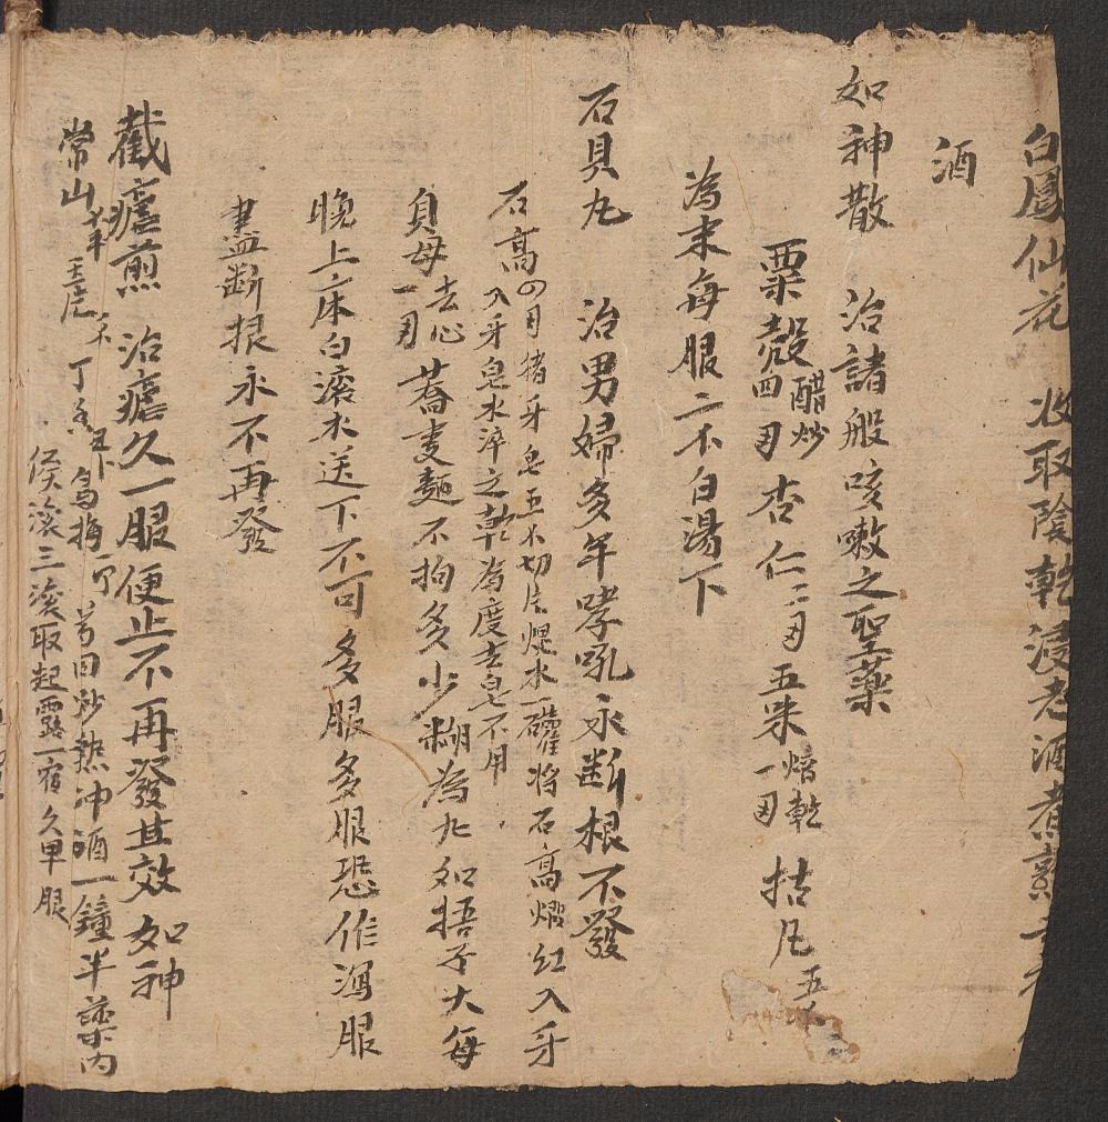 白鳳仙花 收取陰乾浸老酒煮熟
酒
如神散 治諸般咳嗽之聖藥
粟殼醋炒四両 杏仁二両 五朱焙乾一両 枯凡五
為末每服二不白湯下
石具丸 治男婦多年哮吼永断根不發
石高四両猪牙皂五不切片焜水一礶将石高煅红入牙
入牙皂水淬之乾為度去皂不用
貝母去心一両 蕎麦麵不拘多少糊為丸如捂子大每
晚上床白滚水送下不可多服多服恐作瀉服
盡断根永不再發
截瘧煎 治瘧久一服便止不再發其效如神
常山 丁香 烏梅 炒热冲酒一鐘半藥内
滚三滚取起露一宿久早服